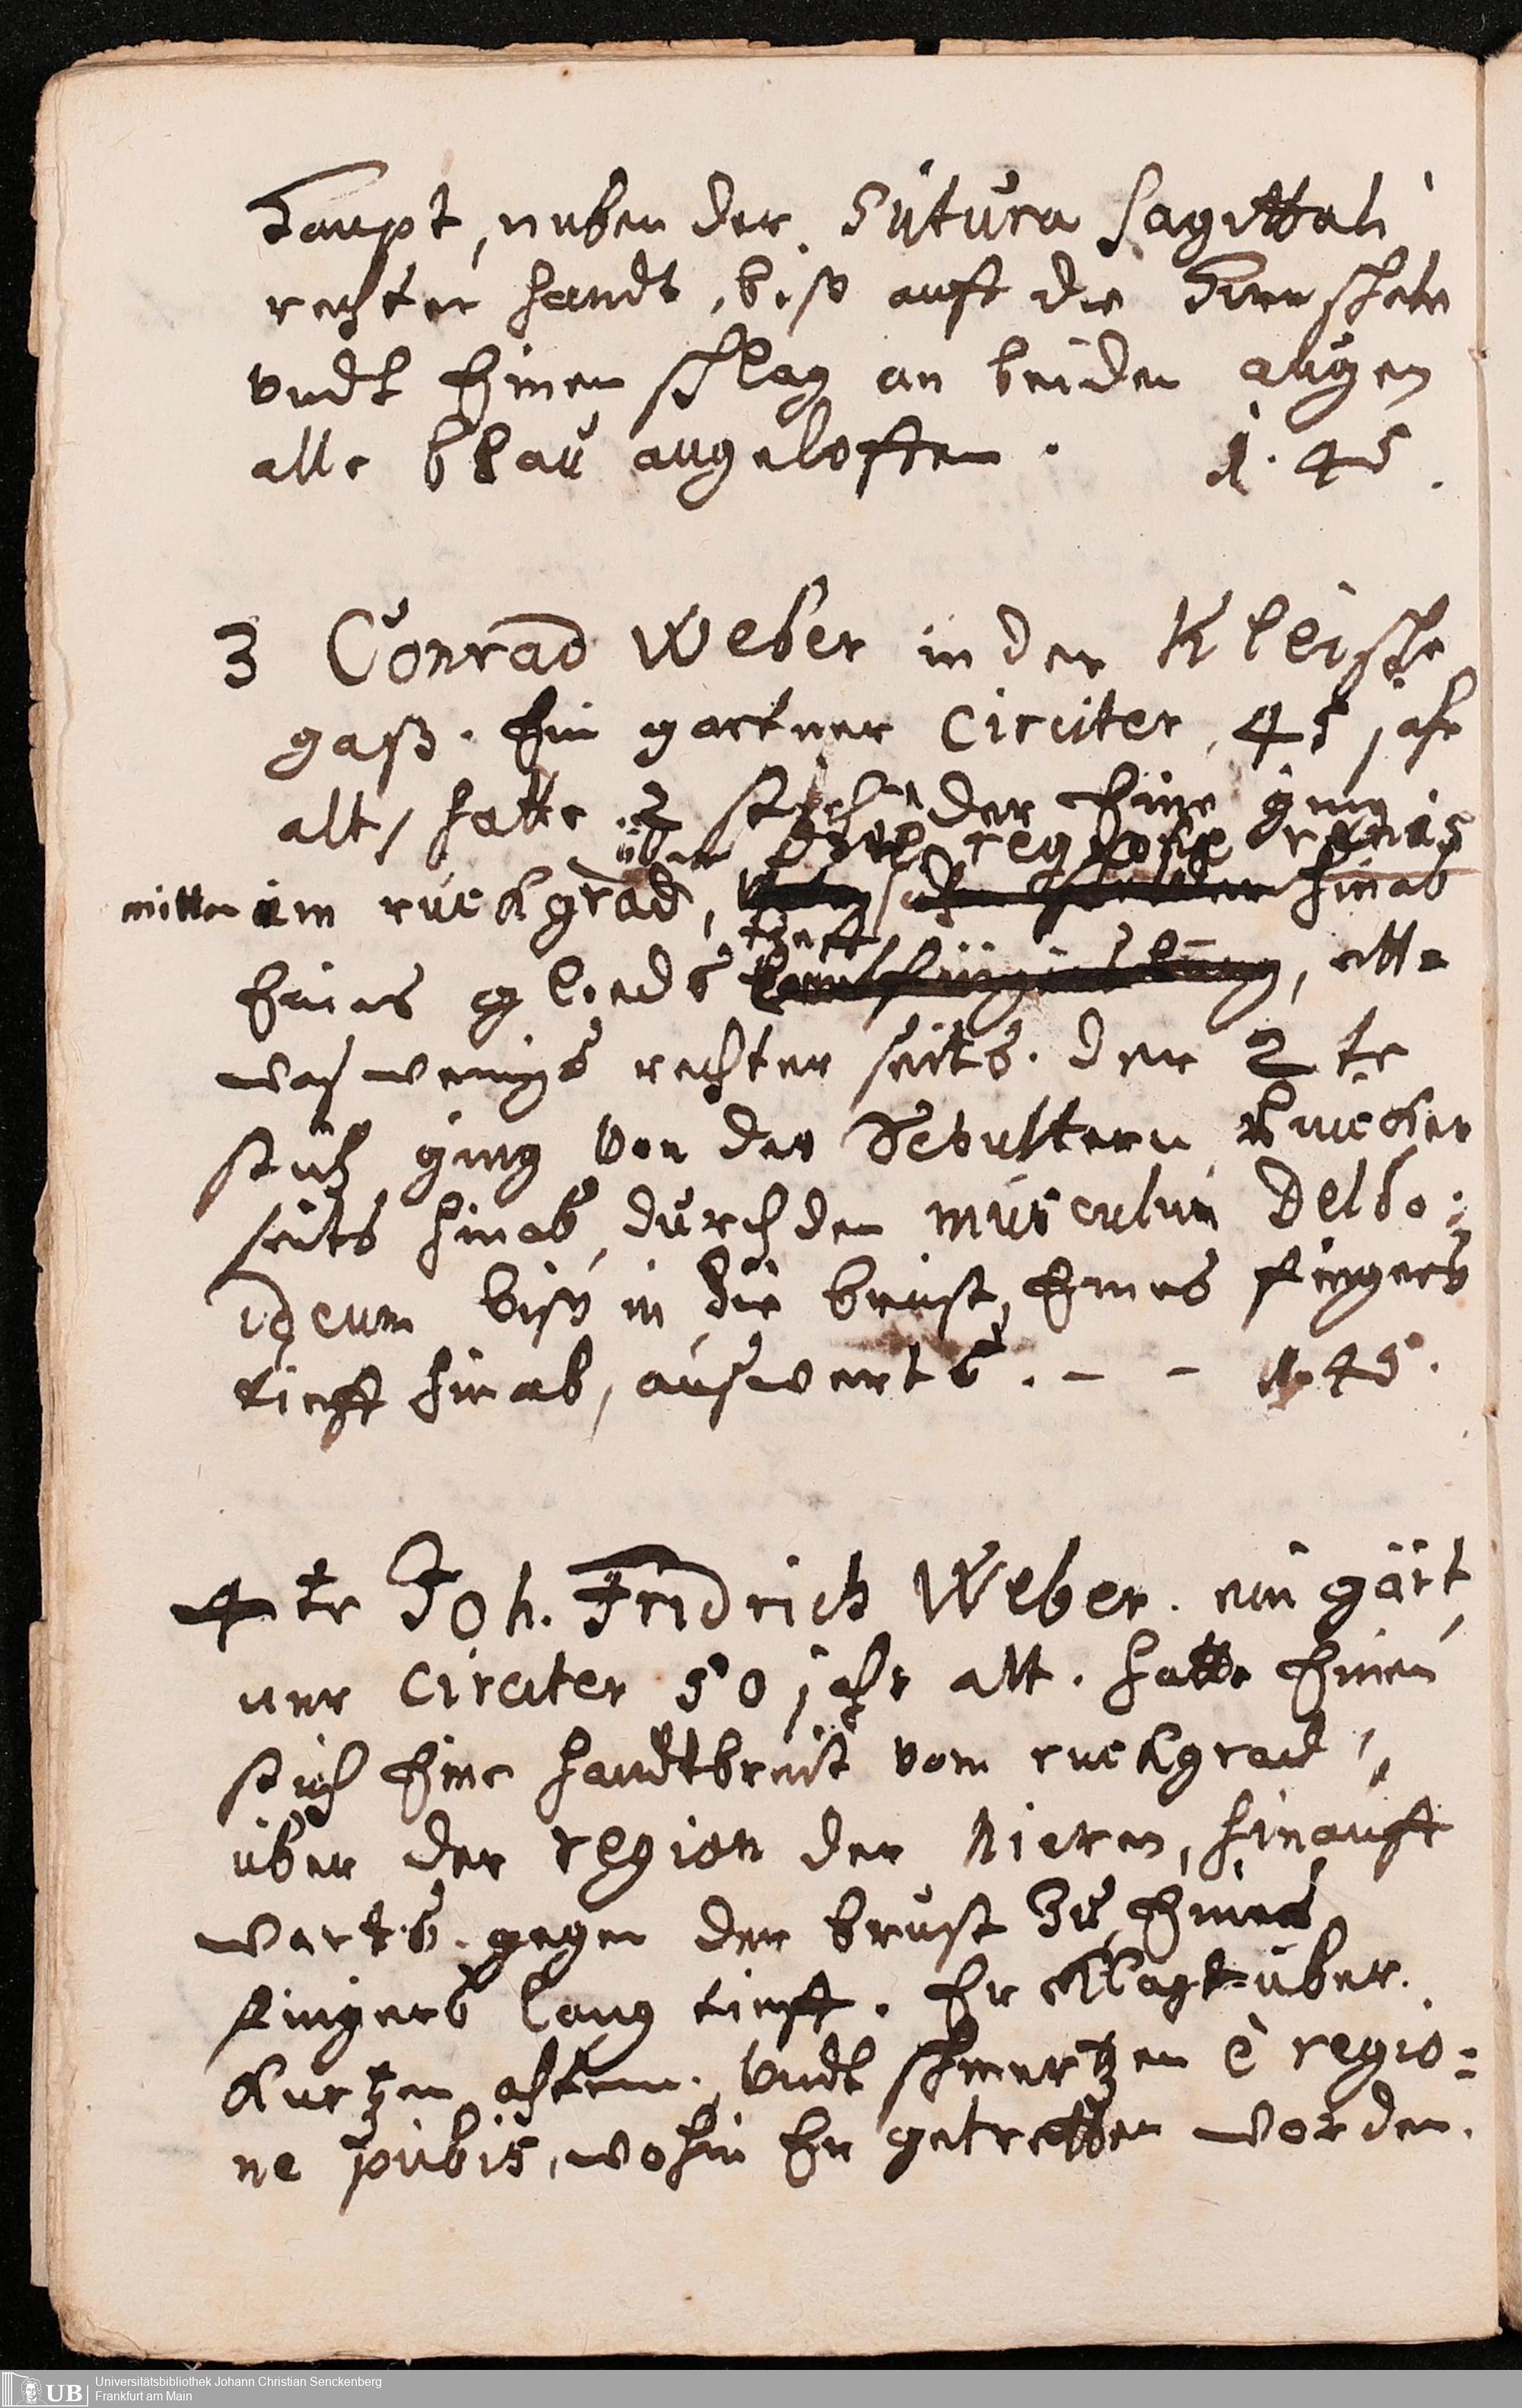 Haupt, neben der Sutura Sagittali
rechter handt, biß auff die Hirnschale
undt Einen schlag an beiden augen
alle blau angeloffen. 1. 45.
3 Conrad Weber in der Kleische
gaß. Ein gartner circiter 45 jahr
alt, hatte 2 stich, der Eine ging
über regione renis
mitten im ruckgrad, hinab
Eines glieds tieff, ette
was wenigs rechter seits. der 2 te
stich ging von der Schultern Lincker
seits hinab, durch den musculum Delto:
ideum biß in die brust, Eines fingers
tieff hinab, auswerts. - - 1. 45.
4 te Joh. Fridrich Weber. ein gärt
ner circiter 50 jahr alt. hatte Einen
stich Eine handtbreit vom ruckgrad,
über der region der Nieren, hinauff
warts gegen der brust zu, Eines
fingers lang tieff. Er klagt über
kurtzen athem. undt schmertzen è regio:
ne pubis, wohin Er getretten worden.
UB Universitätsbibliothek Johann Christian Senckenberg
Frankfurt am Main